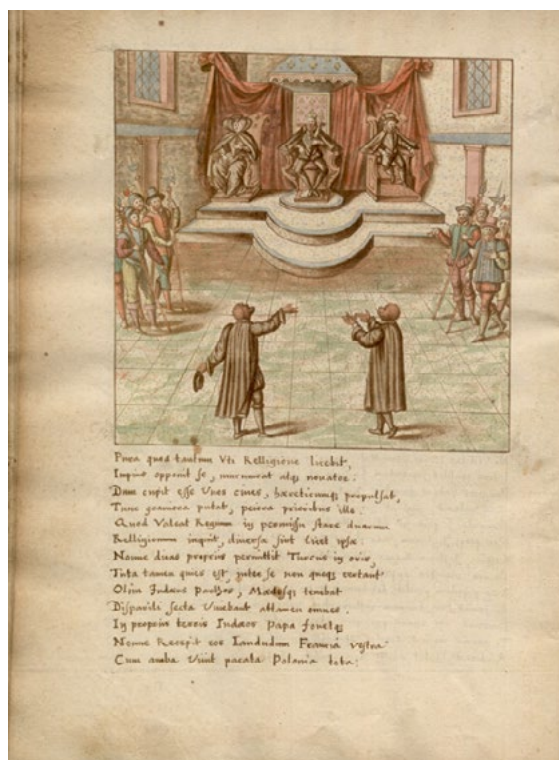 Pura quod tantum Uti Relligione licebit,
Impius opponit se, murmurat atq; novator.
Dum cupit esse Unus cives, hæreticumq; propulsat,
Tunc graviora putat, peiora prioribus ille.
Quod Valeat Regnum in permissu stare duarum
Relligionum inquit, diversæ sint licet ipsæ:
Nonne duas proprio permittit Turcus in orio,
Tuta tamen quies est, inter se non quoq; certant
Olim Judæus Parthos, Medosq; tenebat
Dispari secta Vivebant attamen omnes.
In propriis terris Judæos Papa fovetq;
Nonne Recepit eos Iamdudum Francia vestra
Cum ambæ Vivit pacata Polonia tota: